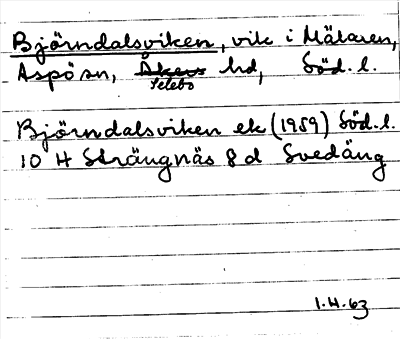 Björndalsviken, vik i Mälaren,
Aspö sn, Åkers hd, Söd. l.
Selebo
Björndalsviken ek (1959) Söd. l.
10 H Strängnäs 8 d Svedäng
1.H.63